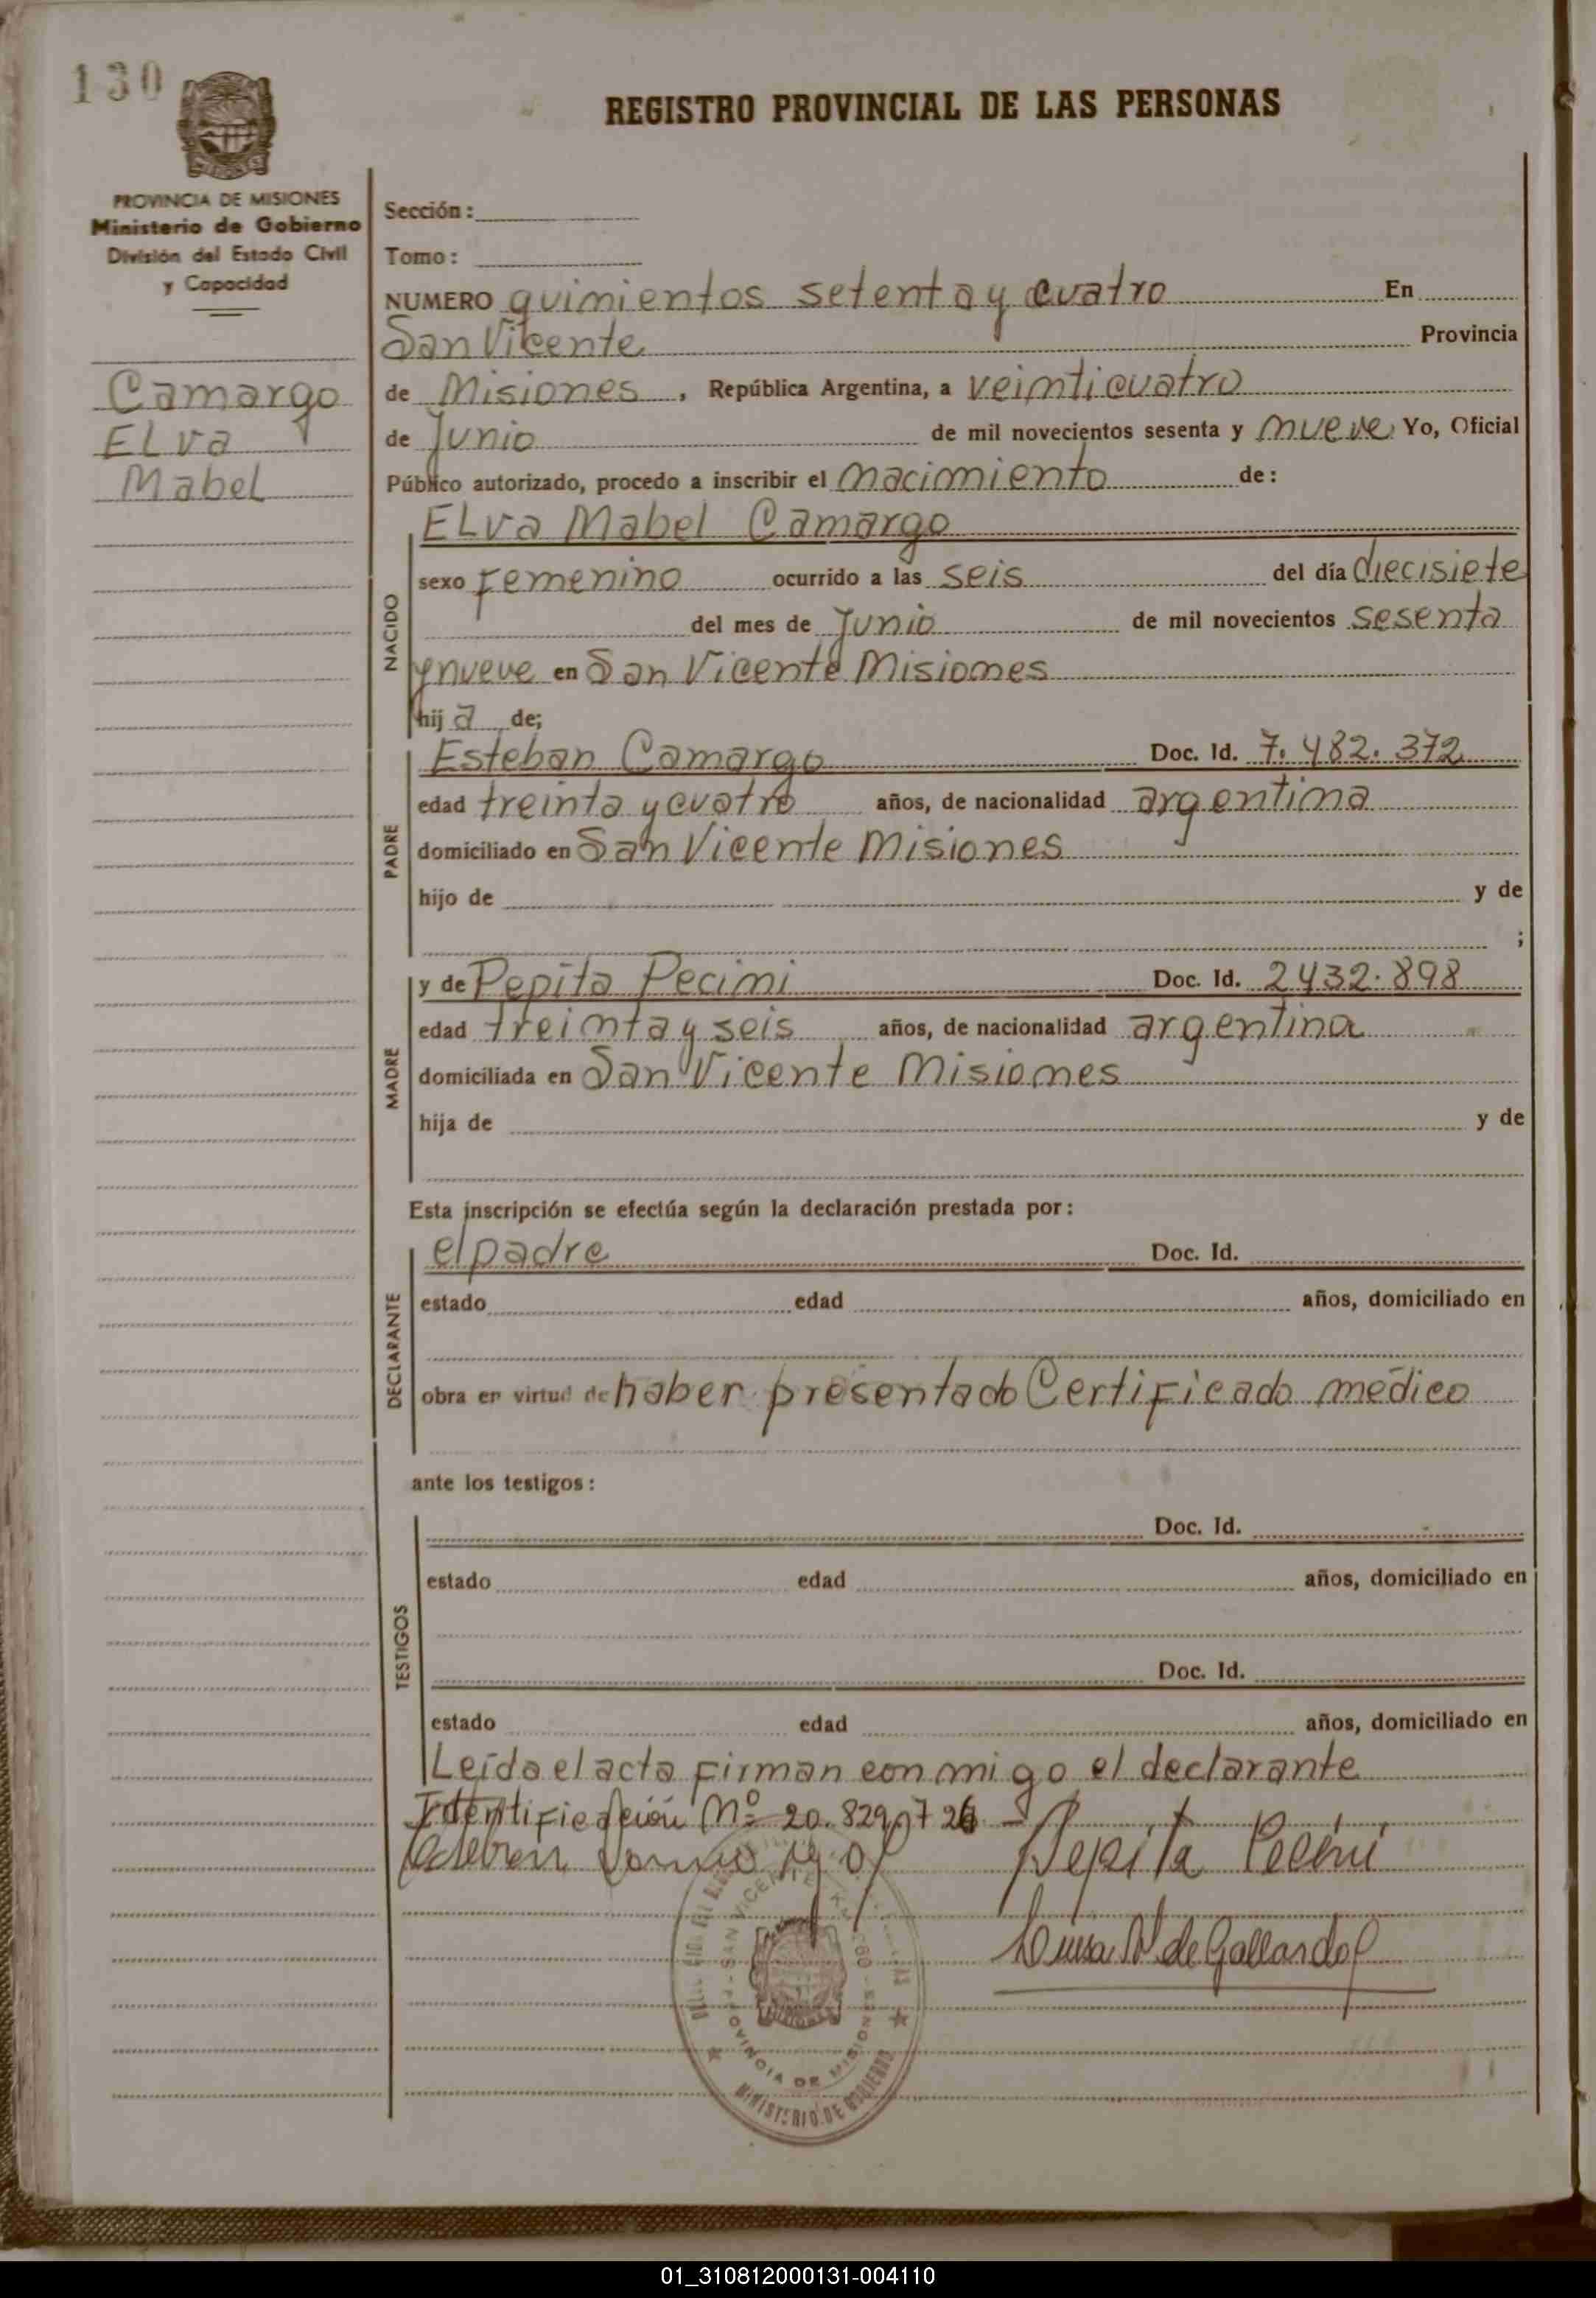 130
REGISTRO PROVINCIAL DE LAS PERSONAS
PROVINCIA DE MISIONES
Ministerio de Gobierno
División del Estado Civil
y Capacidad
Camargo
ELva
Mabel
Sección:
Tomo:
NUMERO quimientos setenta y cuatro En
San Vicente Provincia
de Misiones, República Argentina, a veimticuatro
de Junio de mil novecientos sesenta y mueve Yo, Oficial
Público autorizado, procedo a inscribir el macimiento de:
NACIDO
ELva Mabel Camargo
sexo Femenino ocurrido a las seis del día diecisiete
del mes de Junio de mil novecientos sesenta
y nueve en San Vicente Misiomes
hija de;
PADRE
Esteban Camargo Doc. Id. 7.482.372
edad treinta y cuatro años, de nacionalidad argentima
domiciliado en San Vicente Misiones
hijo de y de
;
MADRE
y de Pepita Pecimi Doc. Id. 2432.898
edad treimta y seis años, de nacionalidad argentina
domiciliada en San Vicente Misiomes
hija de y de
Esta inscripción se efectúa según la declaración prestada por:
DECLARANTE
el padre Doc. Id.
estado edad años, domiciliado en
obra en virtud de haber presentado Certificado medico
ante los testigos:
TESTIGOS
Doc. Id.
estado edad años, domiciliado en
Doc. Id.
estado edad años, domiciliado en
Leida el acta firman conmigo el declarante
Identificación Nº 20.829.726 -
Pepita
de Gallardo
SAN VICENTE
PROVINCIA DE MISIONES
MINISTERIO DE GOBIERNO
01_310812000131-004110